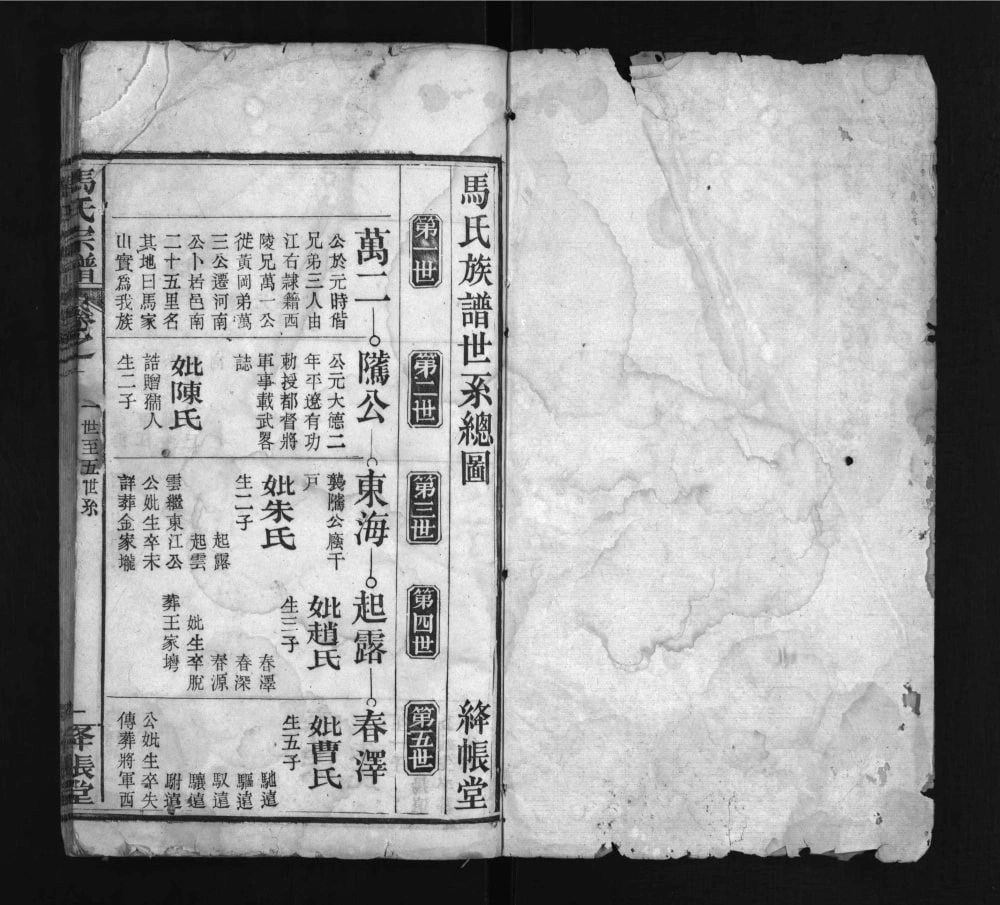 馬氏族譜世系總圖
絳帳堂
第一世
第二世
第三世
第四世
第五世
萬二
公於元時偕
兄弟三人由
江右隸籍西
陵兄萬一公
從黃岡弟萬
三公遷河南
公卜居邑南
二十五里名
其地曰馬家
山實爲我族
隲公
公元大德二
年平遼有功
勅授都督將
軍事載武畧
誌
妣陳氏
誥贈孺人
生二子
東海
襲隲公廕千
戸
妣朱氏
生二子
起露
起雲
雲繼東江公
公妣生卒未
詳葬金家壠
起露
妣趙氏
生三子
春澤
春深
春源
妣生卒脫
葬王家塆
春澤
妣曹氏
生五子
馳遠
驅遠
馭遠
驤遠
駙遠
公妣生卒失
傳葬將軍西
馬氏宗譜
卷之一
一世至五世系
一
絳帳堂